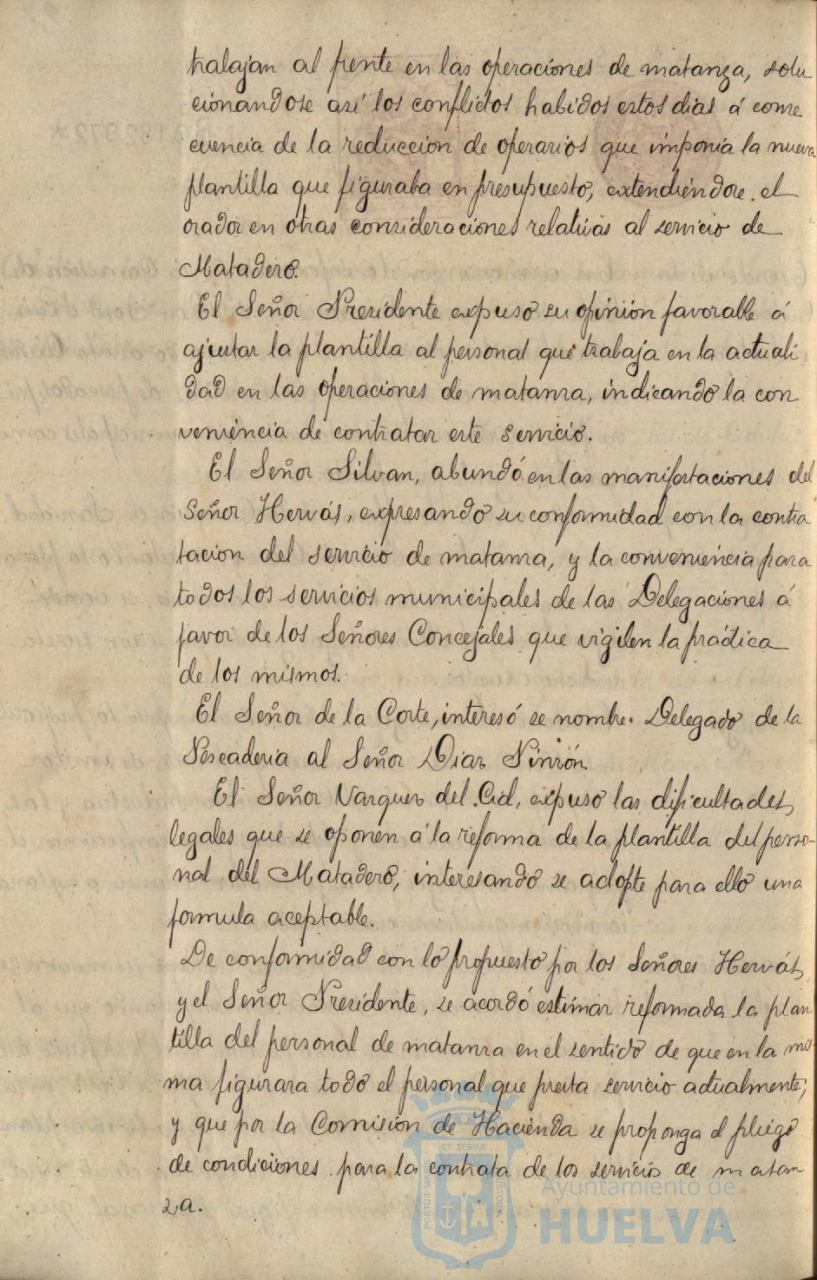 trabajan al frente en las operaciones de matanza, solu
cionandose asi los conflictos habidos estos dias á conse
cuencia de la reduccion de operarios que imponia la nueva
plantilla que figuraba en presupuesto, extendiéndose el
orador en otras consideraciones relativas al servicio de
Matadero.
El Señor Presidente expuso su opinión favorable á
ajustar la plantilla al personal que trabaja en la actuali
dad en las operaciones de matanza, indicando la con
veniencia de contratar este servicio.
El Señor Silvan, abundó en las manifestaciones del
Señor Hervás, expresando su conformidad con la contra
tacion del servicio de matanza, y la conveniencia para
todos los servicios municipales de las Delegaciones á
favor de los Señores Concejales que vigilen la práctica
de los mismos.
El Señor de la Corte, interesó se nombre Delegado de la
Pescaderia al Señor Diaz Pinzón.
El Señor Vazquez del Cid, expuso las dificultades
legales que se oponen á la reforma de la plantilla del perso-
nal del Matadero, interesando se adopte para ello una
formula aceptable.
De conformidad con lo propuesto por los Señores Hervás,
y el Señor Presidente, se acordó estimar reformada la plan
tilla del personal de matanza en el sentido de que en la mis
ma figurara todo el personal que presta servicio actualmente;
y que por la Comision de Hacienda se proponga el pliego
de condiciones para la contrata de los servicio de matan
za.
PORTUS MARIS
ET TERRAE
CUSTODIA
Ayuntamiento de
HUELVA